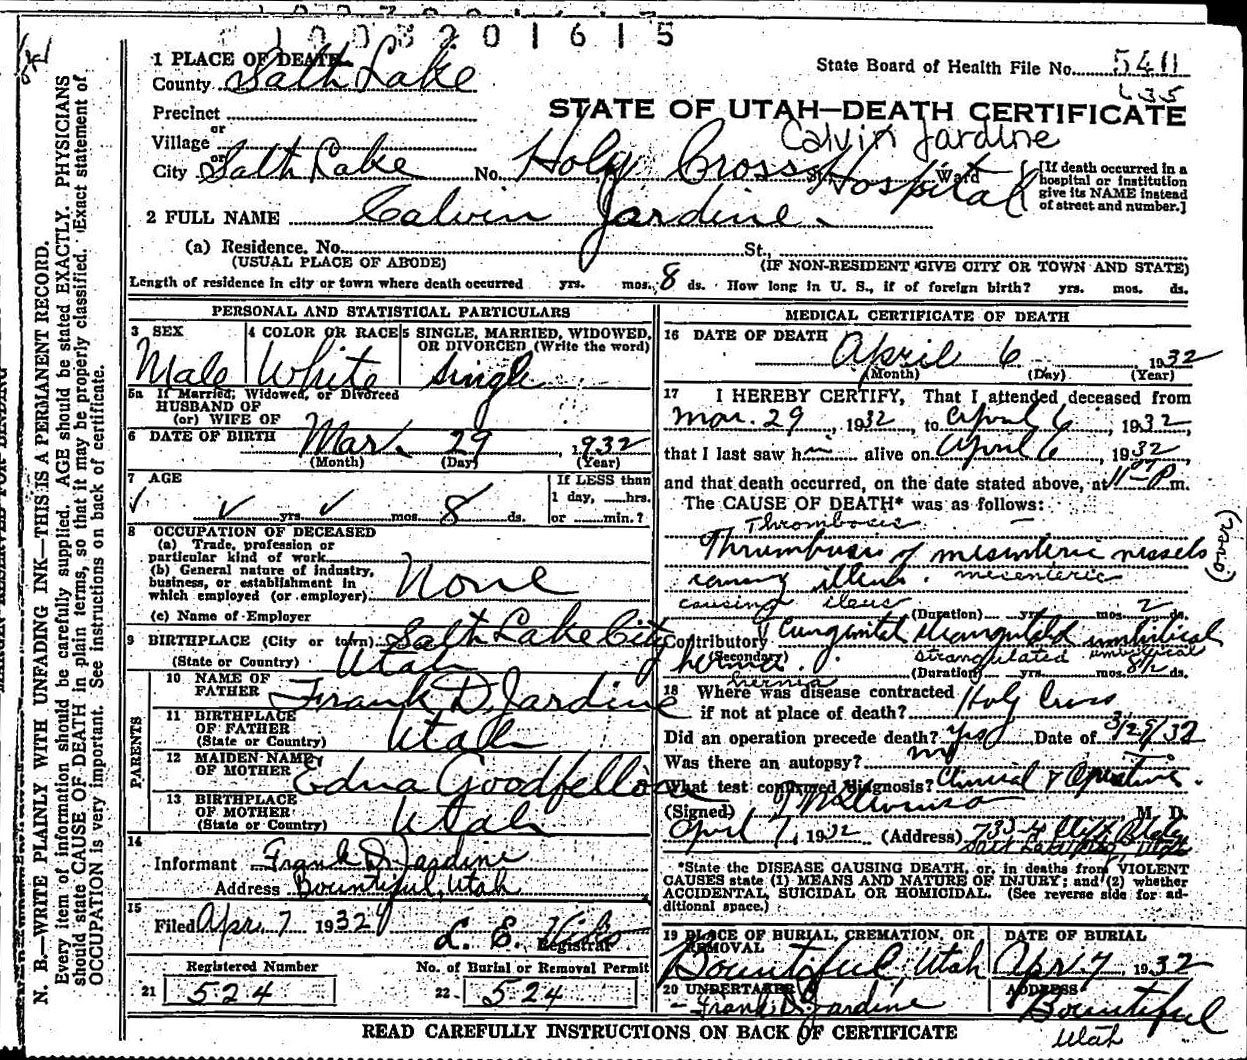 1003201615
1 PLACE OF DEATH
County Salth Lake
State Board of Health File No. 5411
635
Precinct
STATE OF UTAH—DEATH CERTIFICATE
or
Village
Calvin Jardine
or
City Salth Lake No. Holy Cross Hospital St. Ward
[If death occurred in a
hospital or institution
give its NAME instead
of street and number.]
2 FULL NAME Calvin Jardine
(a) Residence. No. St.,
(USUAL PLACE OF ABODE) (IF NON-RESIDENT GIVE CITY OR TOWN AND STATE)
Length of residence in city or town where death occurred yrs. mos. 8 ds. How long in U. S., if of foreign birth? yrs. mos. ds.
PERSONAL AND STATISTICAL PARTICULARS
3 SEX 4 COLOR OR RACE 5 SINGLE, MARRIED, WIDOWED,
OR DIVORCED (Write the word)
Male White Single
5a If Married, Widowed, or Divorced
HUSBAND OF
(or) WIFE OF
6 DATE OF BIRTH Mar. 29, 1932
(Month) (Day) (Year)
7 AGE If LESS than
1 day, hrs.
yrs. mos. 8 ds. or min.?
8 OCCUPATION OF DECEASED
(a) Trade, profession or
particular kind of work
(b) General nature of industry,
business, or establishment in
which employed (or employer) None
(c) Name of Employer
9 BIRTHPLACE (City or town) Salth Lake City
(State or Country) Utah
PARENTS
10 NAME OF
FATHER Frank D. Jardine
11 BIRTHPLACE
OF FATHER
(State or Country) Utah
12 MAIDEN NAME
OF MOTHER Edna Goodfellow
13 BIRTHPLACE
OF MOTHER
(State or Country) Utah
14
Informant Frank D. Jardine
Address Bountiful, Utah
15
Filed Apr. 7 1932
L. E.
Registrar
Registered Number No. of Burial or Removal Permit
21 524 22 524
MEDICAL CERTIFICATE OF DEATH
16 DATE OF DEATH
April 6 1932
(Month) (Day) (Year)
17 I HEREBY CERTIFY, That I attended deceased from
Mar. 29, 1932, to April 6, 1932,
that I last saw him alive on April 6, 1932
and that death occurred, on the date stated above, at 11 P m.
The CAUSE OF DEATH* was as follows:
Thrombosis
Thrumbusis of misinteric vessels
causing illius. mesenteric
causing ileus
(Duration) yrs. mos. 2 ds.
(over)
Contributory Cungenital strangulated umbilical
(Secondary) strangulated umbilical
hernia.
hernia
(Duration) yrs. mos. 8 1/2 ds.
18 Where was disease contracted
if not at place of death? Holy Cross
Did an operation precede death? yes Date of 3/29/32
Was there an autopsy? no
What test confirmed diagnosis? Clinical & Operative.
(Signed) M. D.
April 7, 1932 (Address)
*State the DISEASE CAUSING DEATH, or, in deaths from VIOLENT
CAUSES state (1) MEANS AND NATURE OF INJURY; and (2) whether
ACCIDENTAL, SUICIDAL OR HOMICIDAL. (See reverse side for ad-
ditional space.)
19 PLACE OF BURIAL, CREMATION, OR
REMOVAL
DATE OF BURIAL
Bountiful, Utah Apr. 7, 1932
20 UNDERTAKER ADDRESS
Frank D. Jardine Bountiful
Utah
READ CAREFULLY INSTRUCTIONS ON BACK OF CERTIFICATE
N. B.—WRITE PLAINLY WITH UNFADING INK—THIS IS A PERMANENT RECORD.
Every item of information should be carefully supplied. AGE should be stated EXACTLY. PHYSICIANS
should state CAUSE OF DEATH in plain terms, so that it may be properly classified. Exact statement of
OCCUPATION is very important. See instructions on back of certificate.